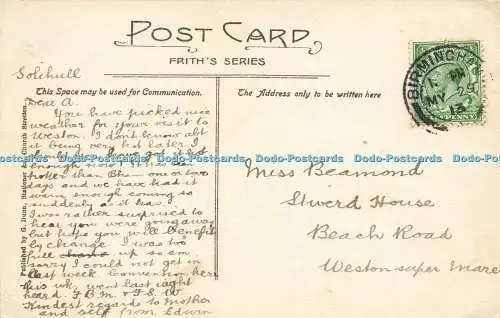 POST CARD
FRITH'S SERIES
Solihull
This Space may be used for Communication.
The Address only to be written here
BIRMINGHAM
PM
MY 29
13
PENNY
Dear A.
You have picked nice
weather for your visit to
Weston. I don't know abt
it being very hot later I
enough now! It has been
hotter than Bham one or two
days and we have had it
warm enough coming so
suddenly as it has.
I was rather surprised to
hear you were going away
but hope you will benefit
by change. I was too
full up so am
sorry I could not get in
last week. Convention here
this wk. went last night
heard F.B.M. & F.S.W.
Kindest regard to Mother
and self from Edwin
Miss Beamond
Stword House
Beach Road
Weston super Mare
Published by G. Dunn, Stationer Church Stretton.
Dodo-Postcards Dodo-Postcards Dodo-Postcards Dodo-Postcards Dodo-Postcards Dodo-Postcards